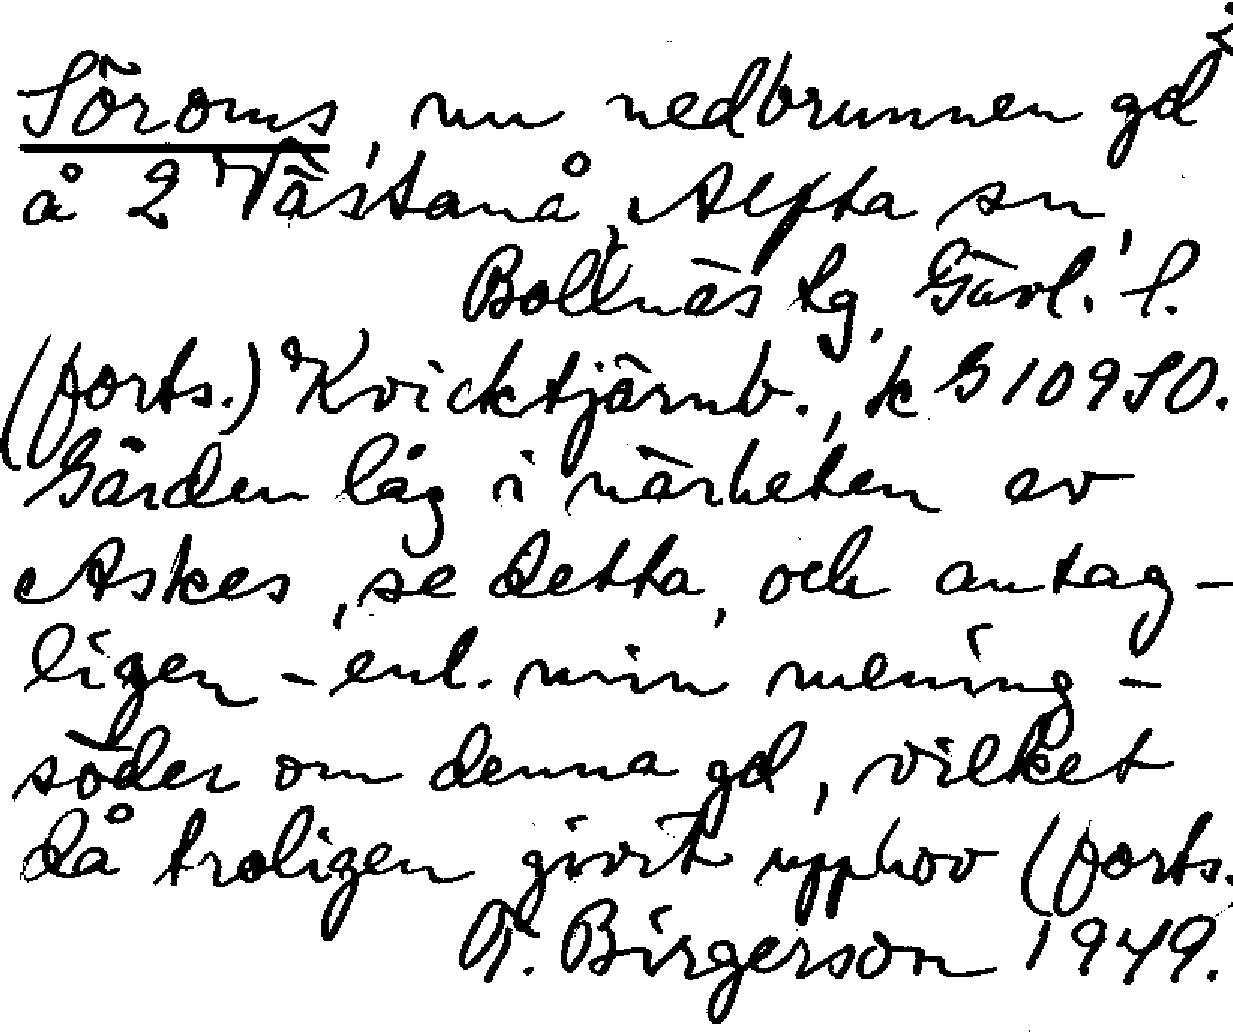 Söroms, nu nedbrunnen gd
å 2 Västanå, Alfta sn,
Bollnäs tg, Gävl. l.
(forts.) Kvicktjärnb., k G 109 SO.
Gården låg i närheten av
Askes, se detta, och antag-
ligen - enl. min mening -
söder om denna gd, vilket
då troligen givit upphov (forts.
T. Birgerson 1949.